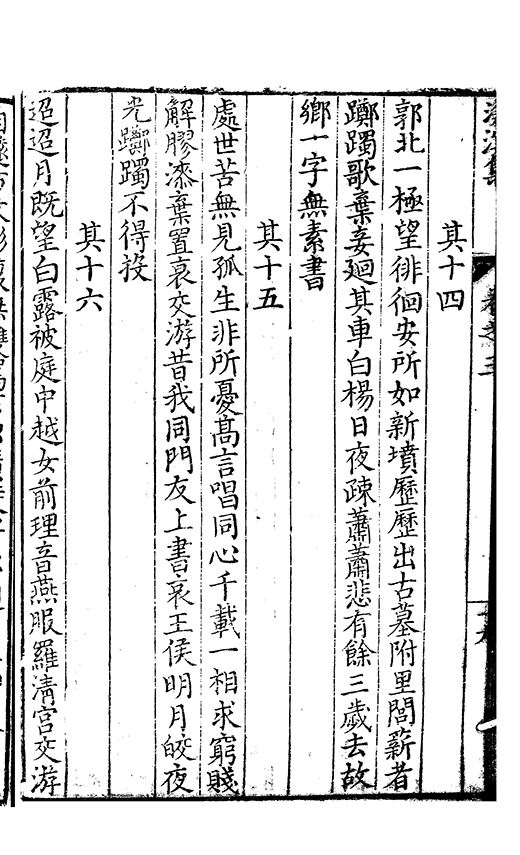 卷之三
其十四
郭北一極望徘徊安所如新墳歷歷出古墓附里閭薪者
躑躅歌棄妾廻其車白楊日夜疎蕭蕭悲有餘三歲去故
鄉一字無素書
其十五
處世苦無見孤生非所憂高言唱同心千載一相求窮賤
解膠漆棄置哀交游昔我同門友上書哀王侯明月皎夜
光躑躅不得投
其十六
迢迢月既望白露被庭中越女前理音燕服羅清宮交游